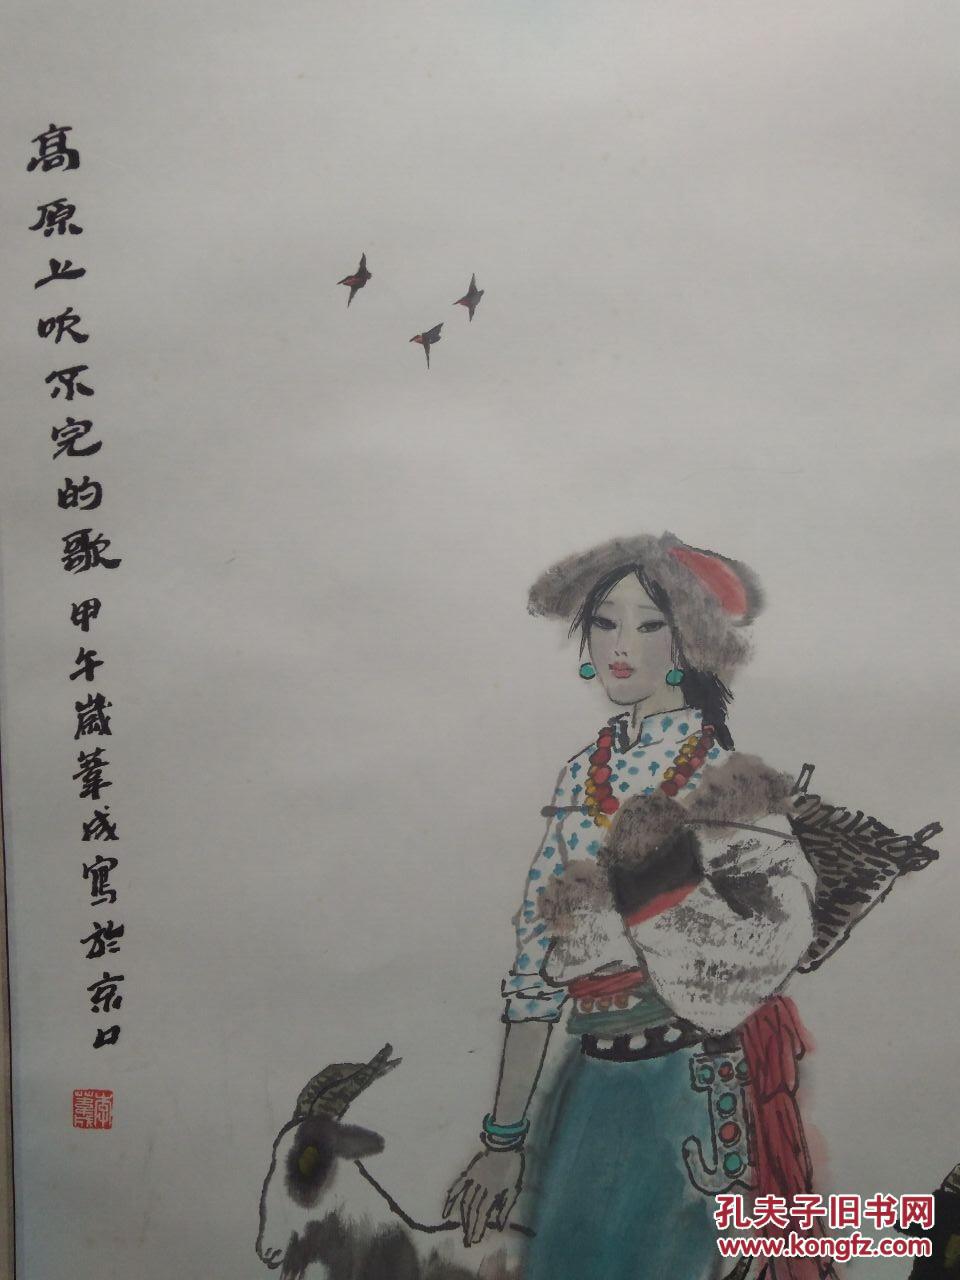 高原上吹不完的歌甲午歲葦成寫於京口
李葦成
孔夫子旧书网
www.kongfz.com